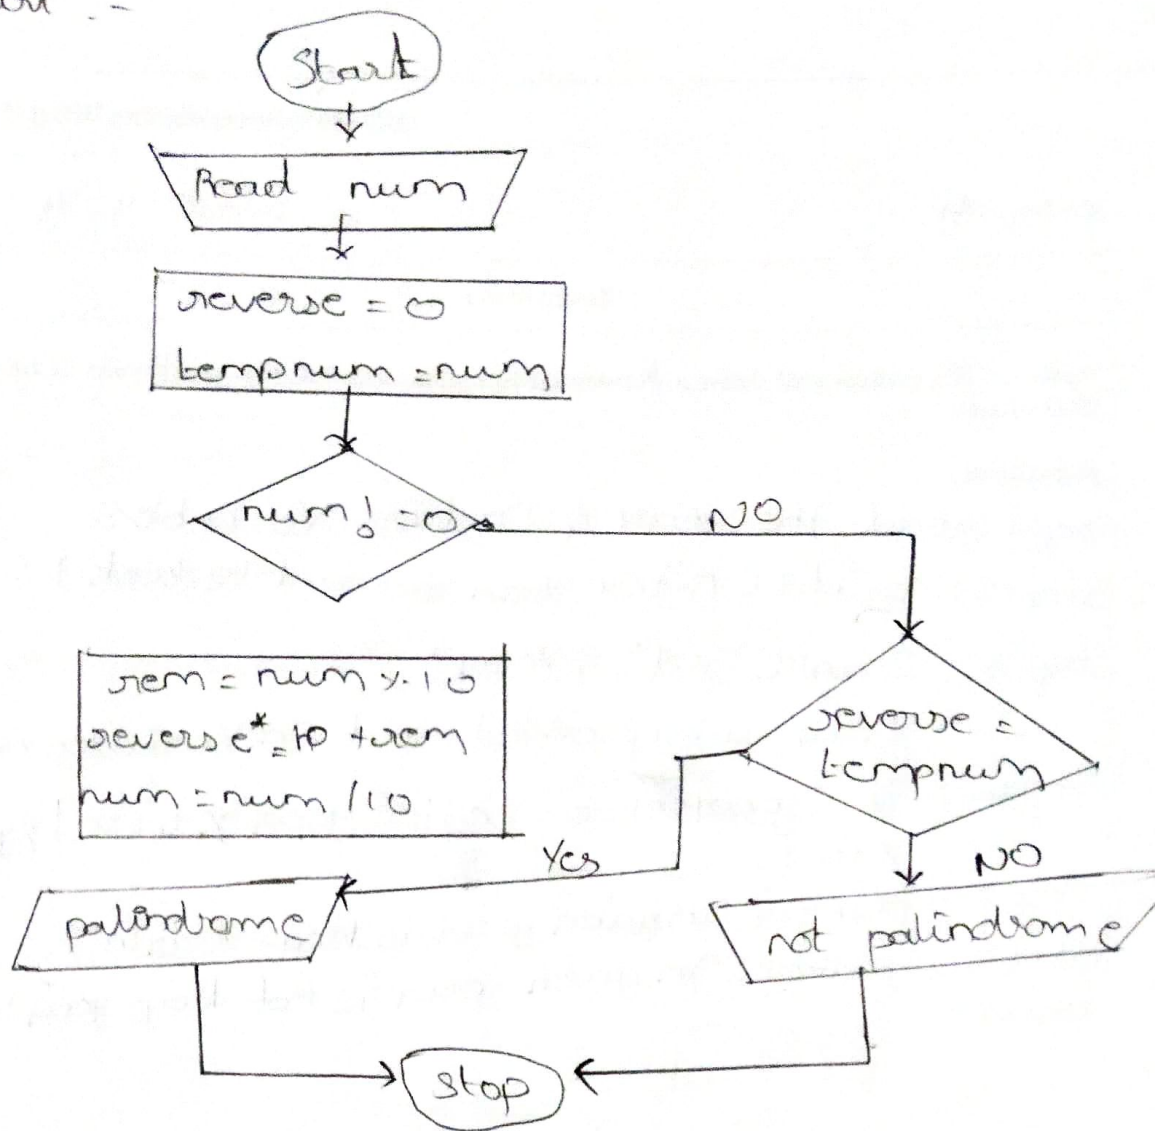 Start
Read num
reverse = 0
tempnum = num
num! = 0
NO
rem = num % 10
reverse* = 10 + rem
num = num / 10
reverse =
tempnum
Yes
NO
palindrome
not palindrome
stop